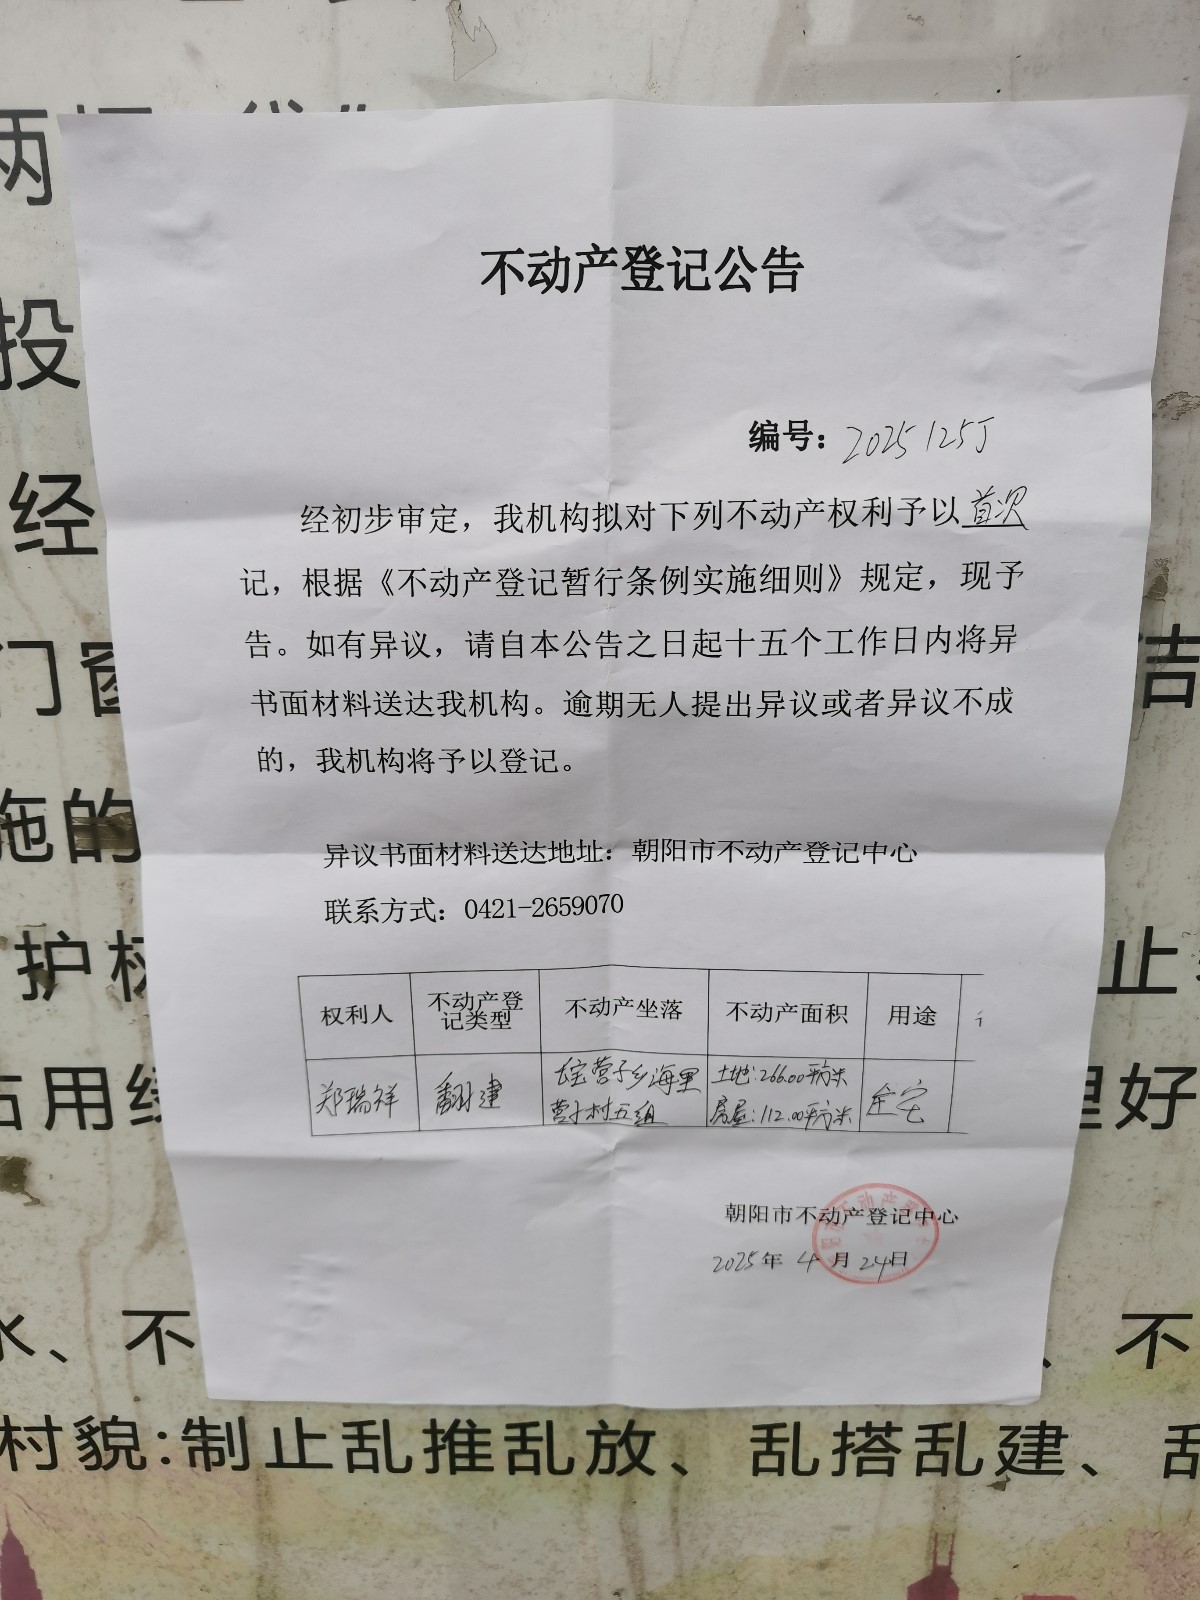 不动产登记公告
编号：2025125J
经初步审定，我机构拟对下列不动产权利予以首次
记，根据《不动产登记暂行条例实施细则》规定，现予
告。如有异议，请自本公告之日起十五个工作日内将异
书面材料送达我机构。逾期无人提出异议或者异议不成
的，我机构将予以登记。
异议书面材料送达地址：朝阳市不动产登记中心
联系方式：0421-2659070
权利人 不动产登记类型 不动产坐落 不动产面积 用途
郑瑞祥 翻建 长宝营子乡海里营子村五组 土地：266.00平方米 房屋：112.00平方米 住宅
朝阳市不动产登记中心
2025年 4 月 24日
两
投
经
门窗
洁
施的
护
止
占用绿
理好
水、不
、不
村貌:制止乱推乱放、乱搭乱建、乱